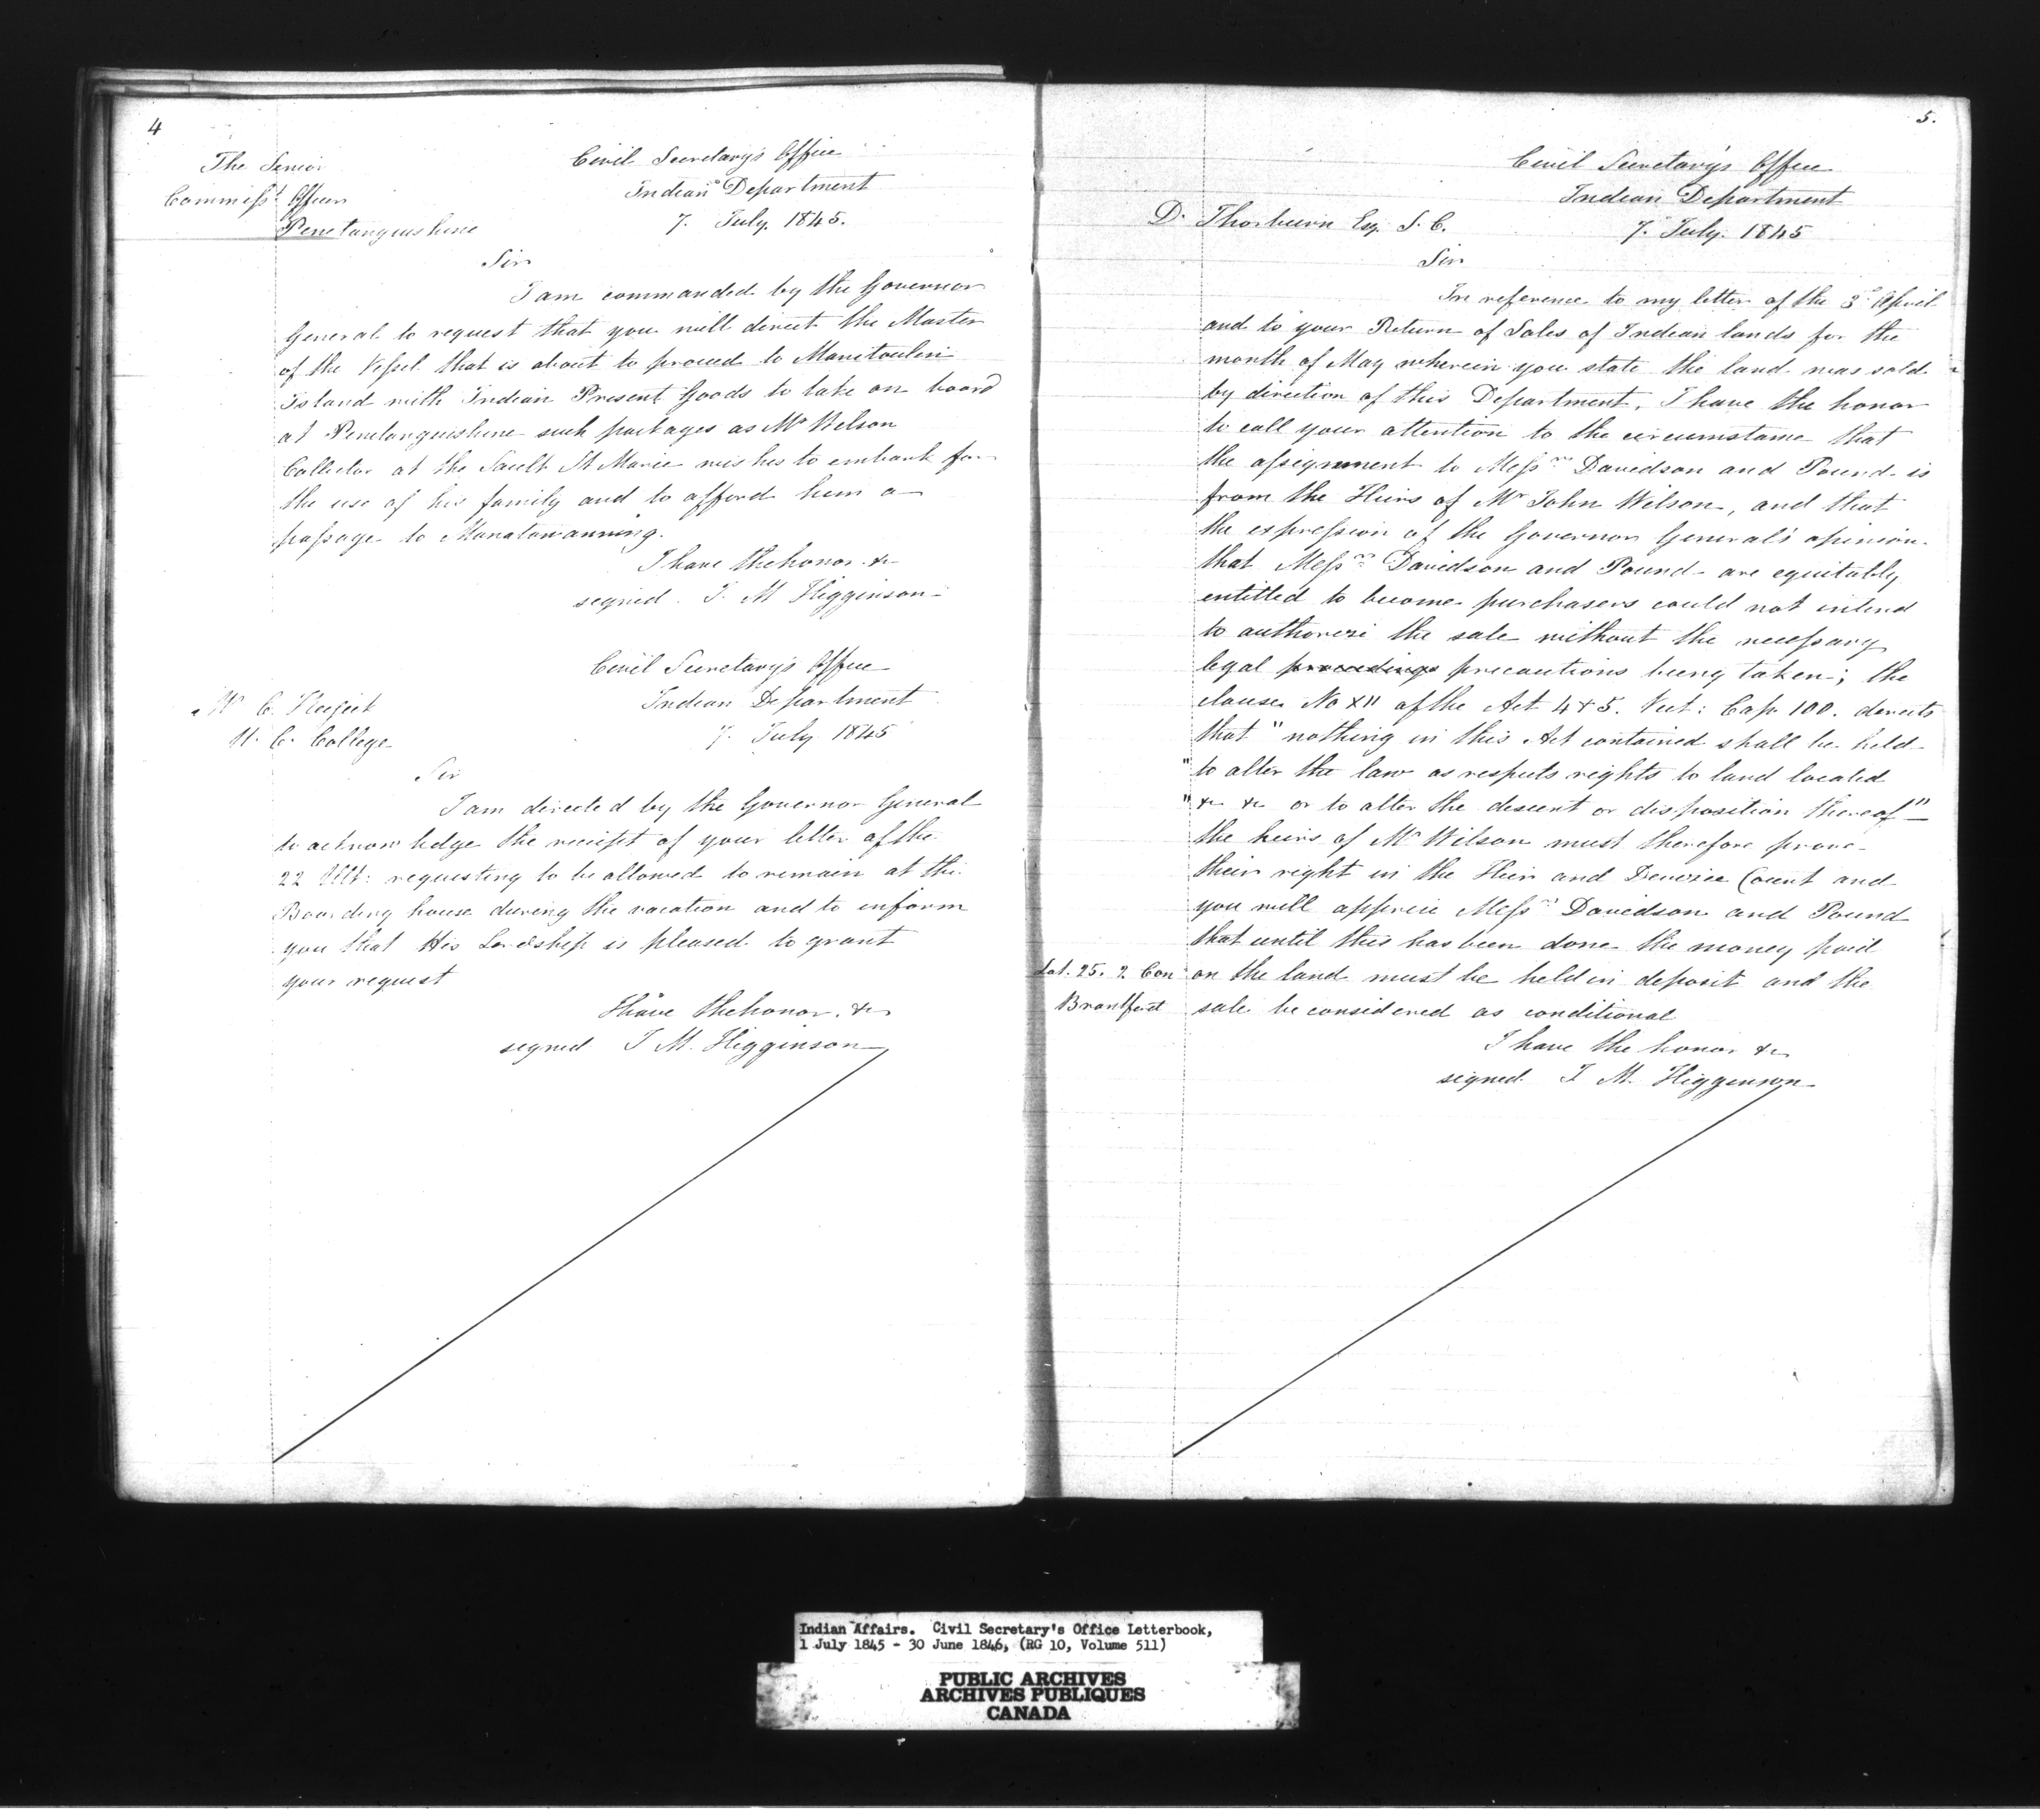 4
The Senior
Commisst Officer
Penetanguishine
Civil Secretary's Office
Indian Department
7. July. 1845.
Sir
I am commanded by the Governor
General to request that you will direct the Master
of the Vessel that is about to proceed to Manitoulin
Island with Indian Present Goods to take on board
at Penetanguishine such packages as Mr Wilson
Collector at the Sault St Marie wishes to embark for
the use of his family and to afford him a
passage to Manatowanning.
I have the honor &c
signed. J. M Higginson
Civil Secretary's Office
Indian Department
7. July 1845
W C. Keejick
U. C. College
Sir
I am directed by the Governor General
to acknowledge the receipt of your letter of the
22 Ult: requesting to be allowed to remain at the
Boarding house during the vacation and to inform
you that His Lordship is pleased to grant
your request
I have the honor. &c
signed J M. Higginson
5.
Civil Secretary's Office
Indian Department
7. July. 1845
D. Thorburn Esq. S. C.
Sir
In reference to my letter of the 3rd April
and to your Return of Sales of Indian lands for the
month of May wherein you state the land was sold
by direction of this Department, I have the honor
to call your attention to the circumstance that
the assignment to Messrs Davidson and Pound is
from the Heirs of Mr John Wilson, and that
the expression of the Governor General's opinion
that Messrs Davidson and Pound are equitably
entitled to become purchasers could not intend
to authorize the sale without the necessary
legal proceedings precautions being taken; the
clause No XII of the Act 4 & 5. Vict: Cap. 100. directs
that "nothing in this Act contained shall be held
"to alter the law as respects rights to land located
"&c &c or to alter the descent or disposition thereof"
the heirs of Mr Wilson must therefore prove
their right in the Heir and Devisee Court and
you will apprise Messrs Davidson and Pound
that until this has been done the money paid
Lot. 25. 2 Con on the land must be held in deposit and the
Brantford sale be considered as conditional
I have the honor &c
signed J M. Higginson
Indian Affairs. Civil Secretary's Office Letterbook,
1 July 1845 - 30 June 1846, (RG 10, Volume 511)
PUBLIC ARCHIVES
ARCHIVES PUBLIQUES
CANADA